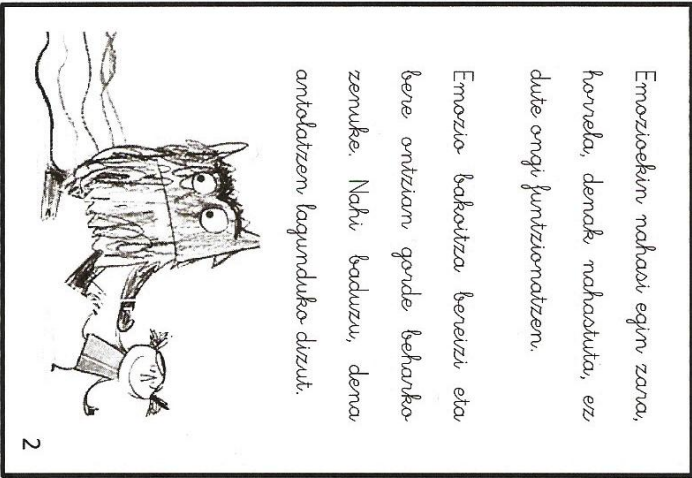 Emozioekin nahasi egin zara,
horrela, denak nahastuta, ez
dute ongi funtzionatzen.
Emozio bakoitza bereizi eta
bere ontzian gorde beharko
zenuke. Nahi baduzu, dena
antolatzen lagunduko dizut.
2